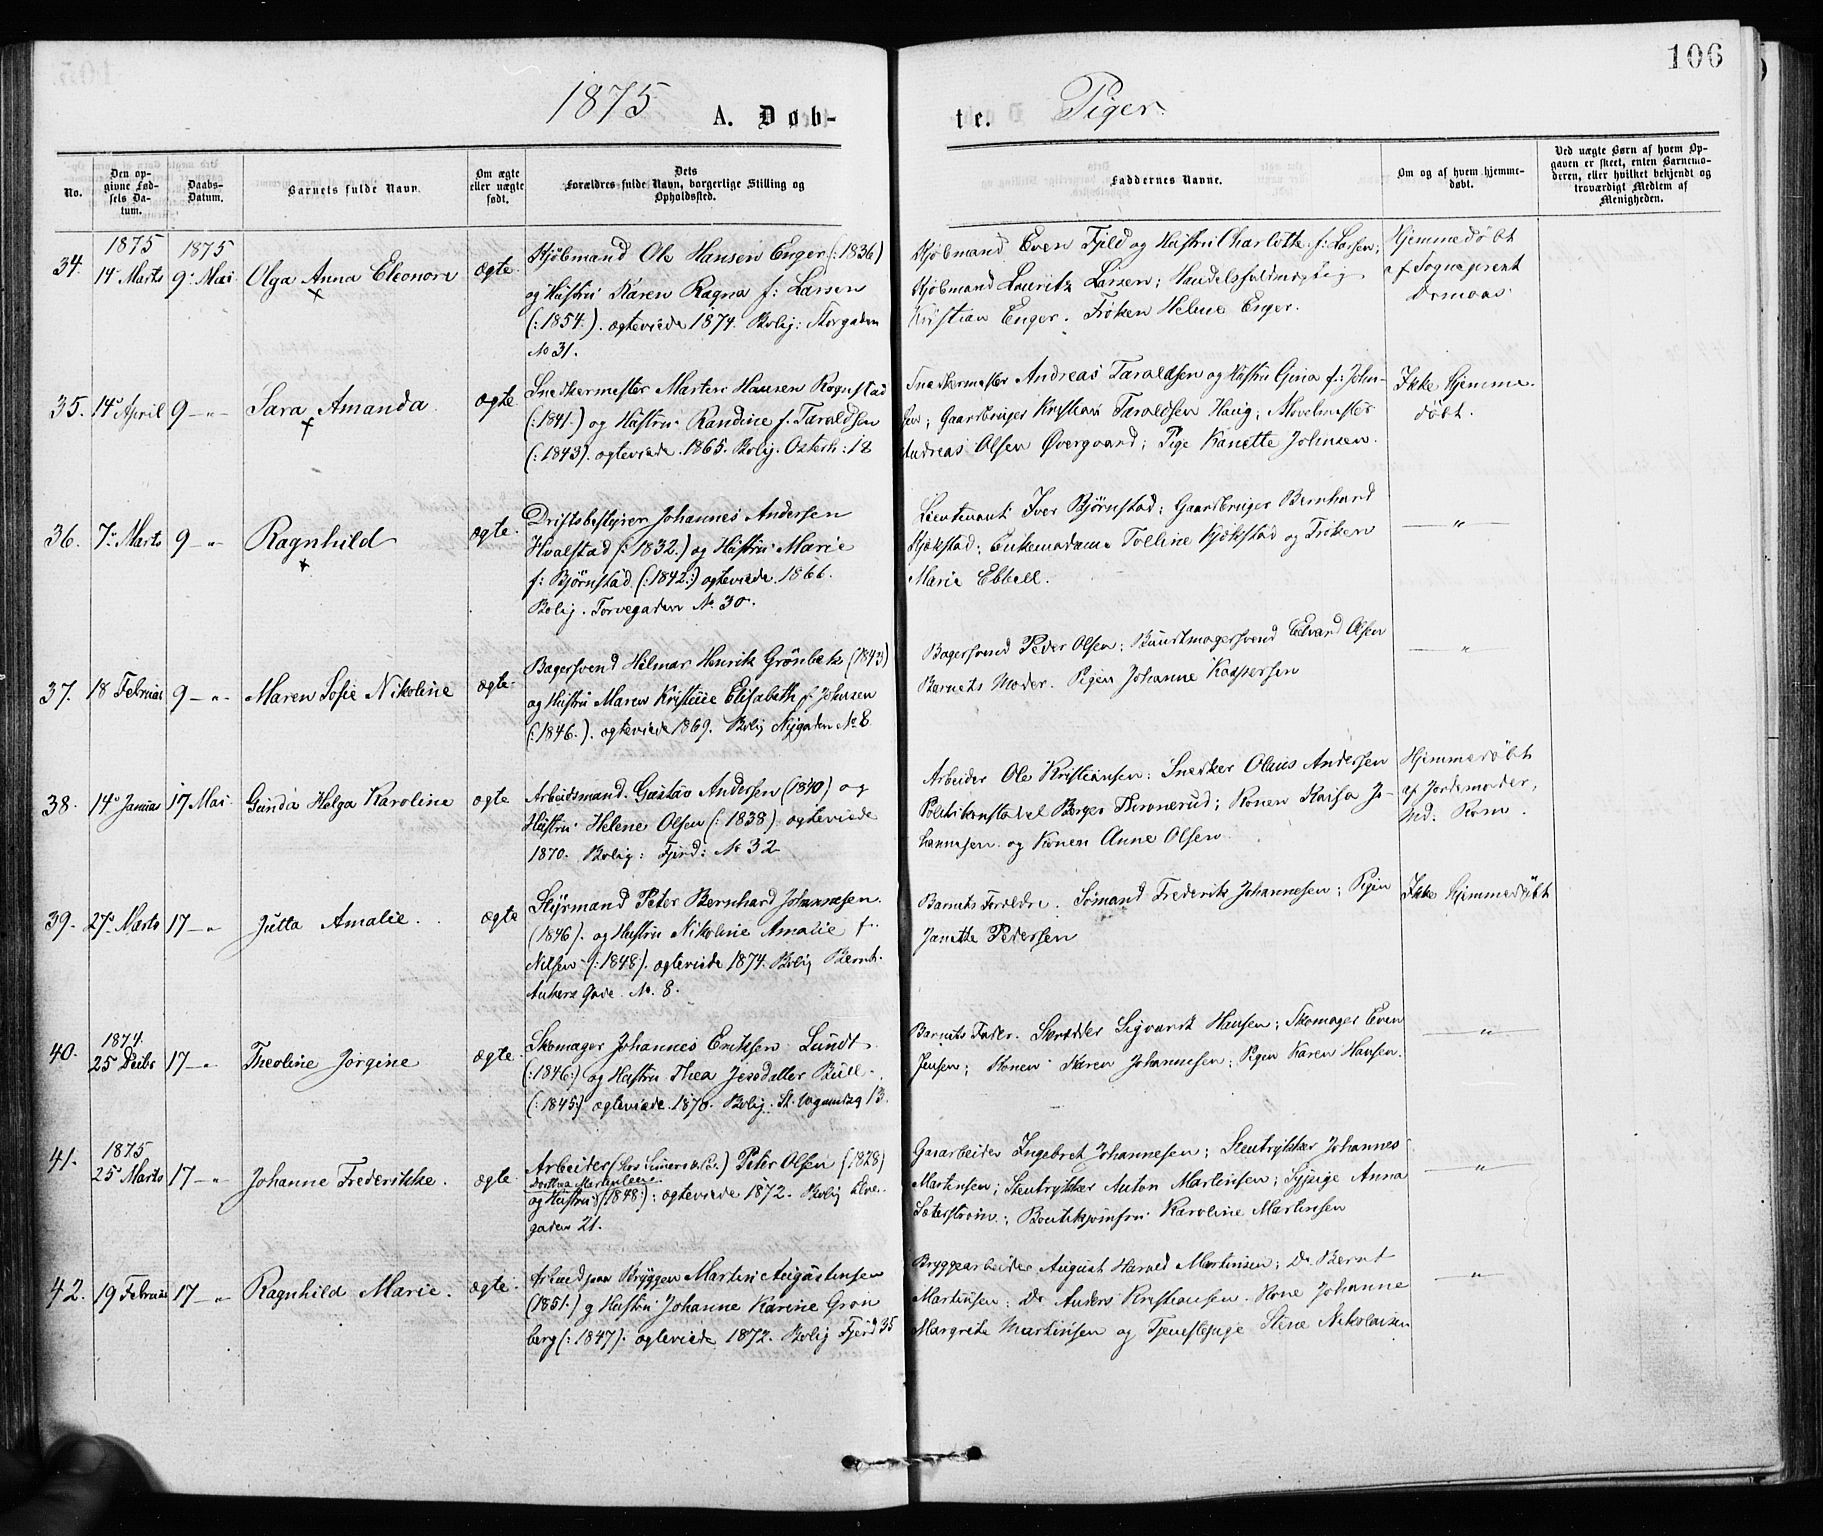 106
1875 A. Døb- te. Piger.
No.
Den op-
givne Fød-
sels Da-
tum.
Daabs-
Datum.
Barnets fulde Navn.
Om ægte
eller uægte
født.
Dets
Forældres fulde Navn, borgerlige Stilling og
Opholdssted.
Faddernes Navne.
Om og af hvem hjemme-
døbt.
Ved uægte Børn af hvem Op-
gaven er skeet, enten Barnemo-
deren, eller hvilket bekjendt og
troværdigt Medlem af
Menigheden.
34.
1875
14de Marts
1875
9de Mai
Olga Anna Eleonore
ægte.
Kjøbmand Ole Hansen Enger (:1836)
og Hustru Karen Ragna f: Larsen
(:1854:). ægteviede 1874. Bolig: Storgaden
No 31.
Kjøbmand Even Fjeld og Hustru Charlotte f: Larsen;
Kjøbmand Lauritz Larsen; Handelsfuldmægtig
Kristian Enger. Frøken Helene Enger.
Hjemmedøbt
af Sogneprest
35. 14de April 9 — „ — Sara Amanda. ægte.
Snedkermester Martin Hansen Rognstad
(:1841.) og Hustru Randine f. Taraldsen
(:1843). ægteviede. 1865. Bolig. Osterh: 18
Snedkermester Andreas Taraldsen og Hustru Gina f: John-
sen; Gaardbruger Kristian Taraldsen Haug;
Andreas Olsen Øvergaard; Pige Kanette Johnsen.
Ikke Hjemme-
døbt.
36. 7de Marts 9 — „ — Ragnhild ægte.
Driftsbestyrer Johannes Andersen
Hvalstad (:1832.) og Hustru Marie
f: Bjørnstad (:1842:) ægteviede. 1866.
Bolig. Torvegaden No. 30.
Lieutenant Iver Bjørnstad; Gaardbruger Bernhard
Kjøkstad; Enkemadame Tolline Kjøkstad og Frøken
Marie Ebbell.
— „ —
37. 18 Februar 9 — „ — Maren Sofie Nikoline ægte.
Bagersvend Hilmar Henrik Grönbek (1843)
og Hustru Maren Kristine Elisabeth f. Johnsen
(:1846.). ægteviede 1869. Bolig Nygaden No 8
Bagersvend Peder Olsen; Buntmagersvend Edvard Olsen
Barnets Moder. Pigen Johanne Kaspersen
— „ —
38. 14de Januar 17 Mai. Gunda Helga Karoline ægte
Arbeidsmand. Gustav Andersen (1840) og
Hustru Helene Olsen (:1838) ægteviede
1870. Bolig: Fjerd: No 32
Arbeider Ole Kristiansen; Snedker Olaus Andersen
Politikonstabel Berger Thronerud; Konen Kaisa Jo-
hannesen og Konen Anne Olsen.
Hjemmedøbt
af Jordemoder,
39. 27de Marts 17 — „ Jutta Amalie. ægte
Styrmand Peter Bernhard Johannesen.
(1846). og Hustru Nikoline Amalie f.
Nilsen (:1848). ægteviede 1874. Bolig Bernt.
Ankers Gade. No. 8.
Barnets Forældre. Sømand Frederik Johannesen; Pigen
Janette Pedersen
Ikke Hjemmedøbt
40.
1874.
25 Decbr 17 — „ Theoline Jörgine ægte.
Skomager Johannes Eriksen Lundt
(:1846:) og Hustru Thea Jensdatter Bull
(:1845:) ægteviede. 1870. Bolig. St. 13.
Barnets Fader. Skrædder Sigvardt Hansen; Skomager Even
Jensen; Konen Karen Johannesen; Pigen Karen Hansen.
— „ —
41.
1875
25de Marts 17 — „ Johanne Frederikke. ægte.
Arbeider Peter Olsen (1828)
Dorthea Martinsen
og Hustru (1848:); ægteviede 1872. Bolig Elve-
gaden 21.
Gasarbeider Ingebret Johannesen; Stentrykker Johannes
Martinsen; Stentrykker Anton Martinsen; Sypige Anna
Søterstrøm; Boutikjomfru Karoline Martinsen
— „ —
42. 19 Februar 17 — „ Ragnhild Marie. ægte.
Arbeid. paa Bryggen Martin Augustinsen
(1851.) og Hustru Johanne Karine Gron
berg (:1847). ægteviede 1872. Bolig Fjerd 35
Bryggearbeider August Harald Martinsen; Do Bernt
Martinsen; Do Anders Kristiansen. Kone Johanne
Margrete Martinsen og Tjenestepige Stine Nikolaisen
— „ —